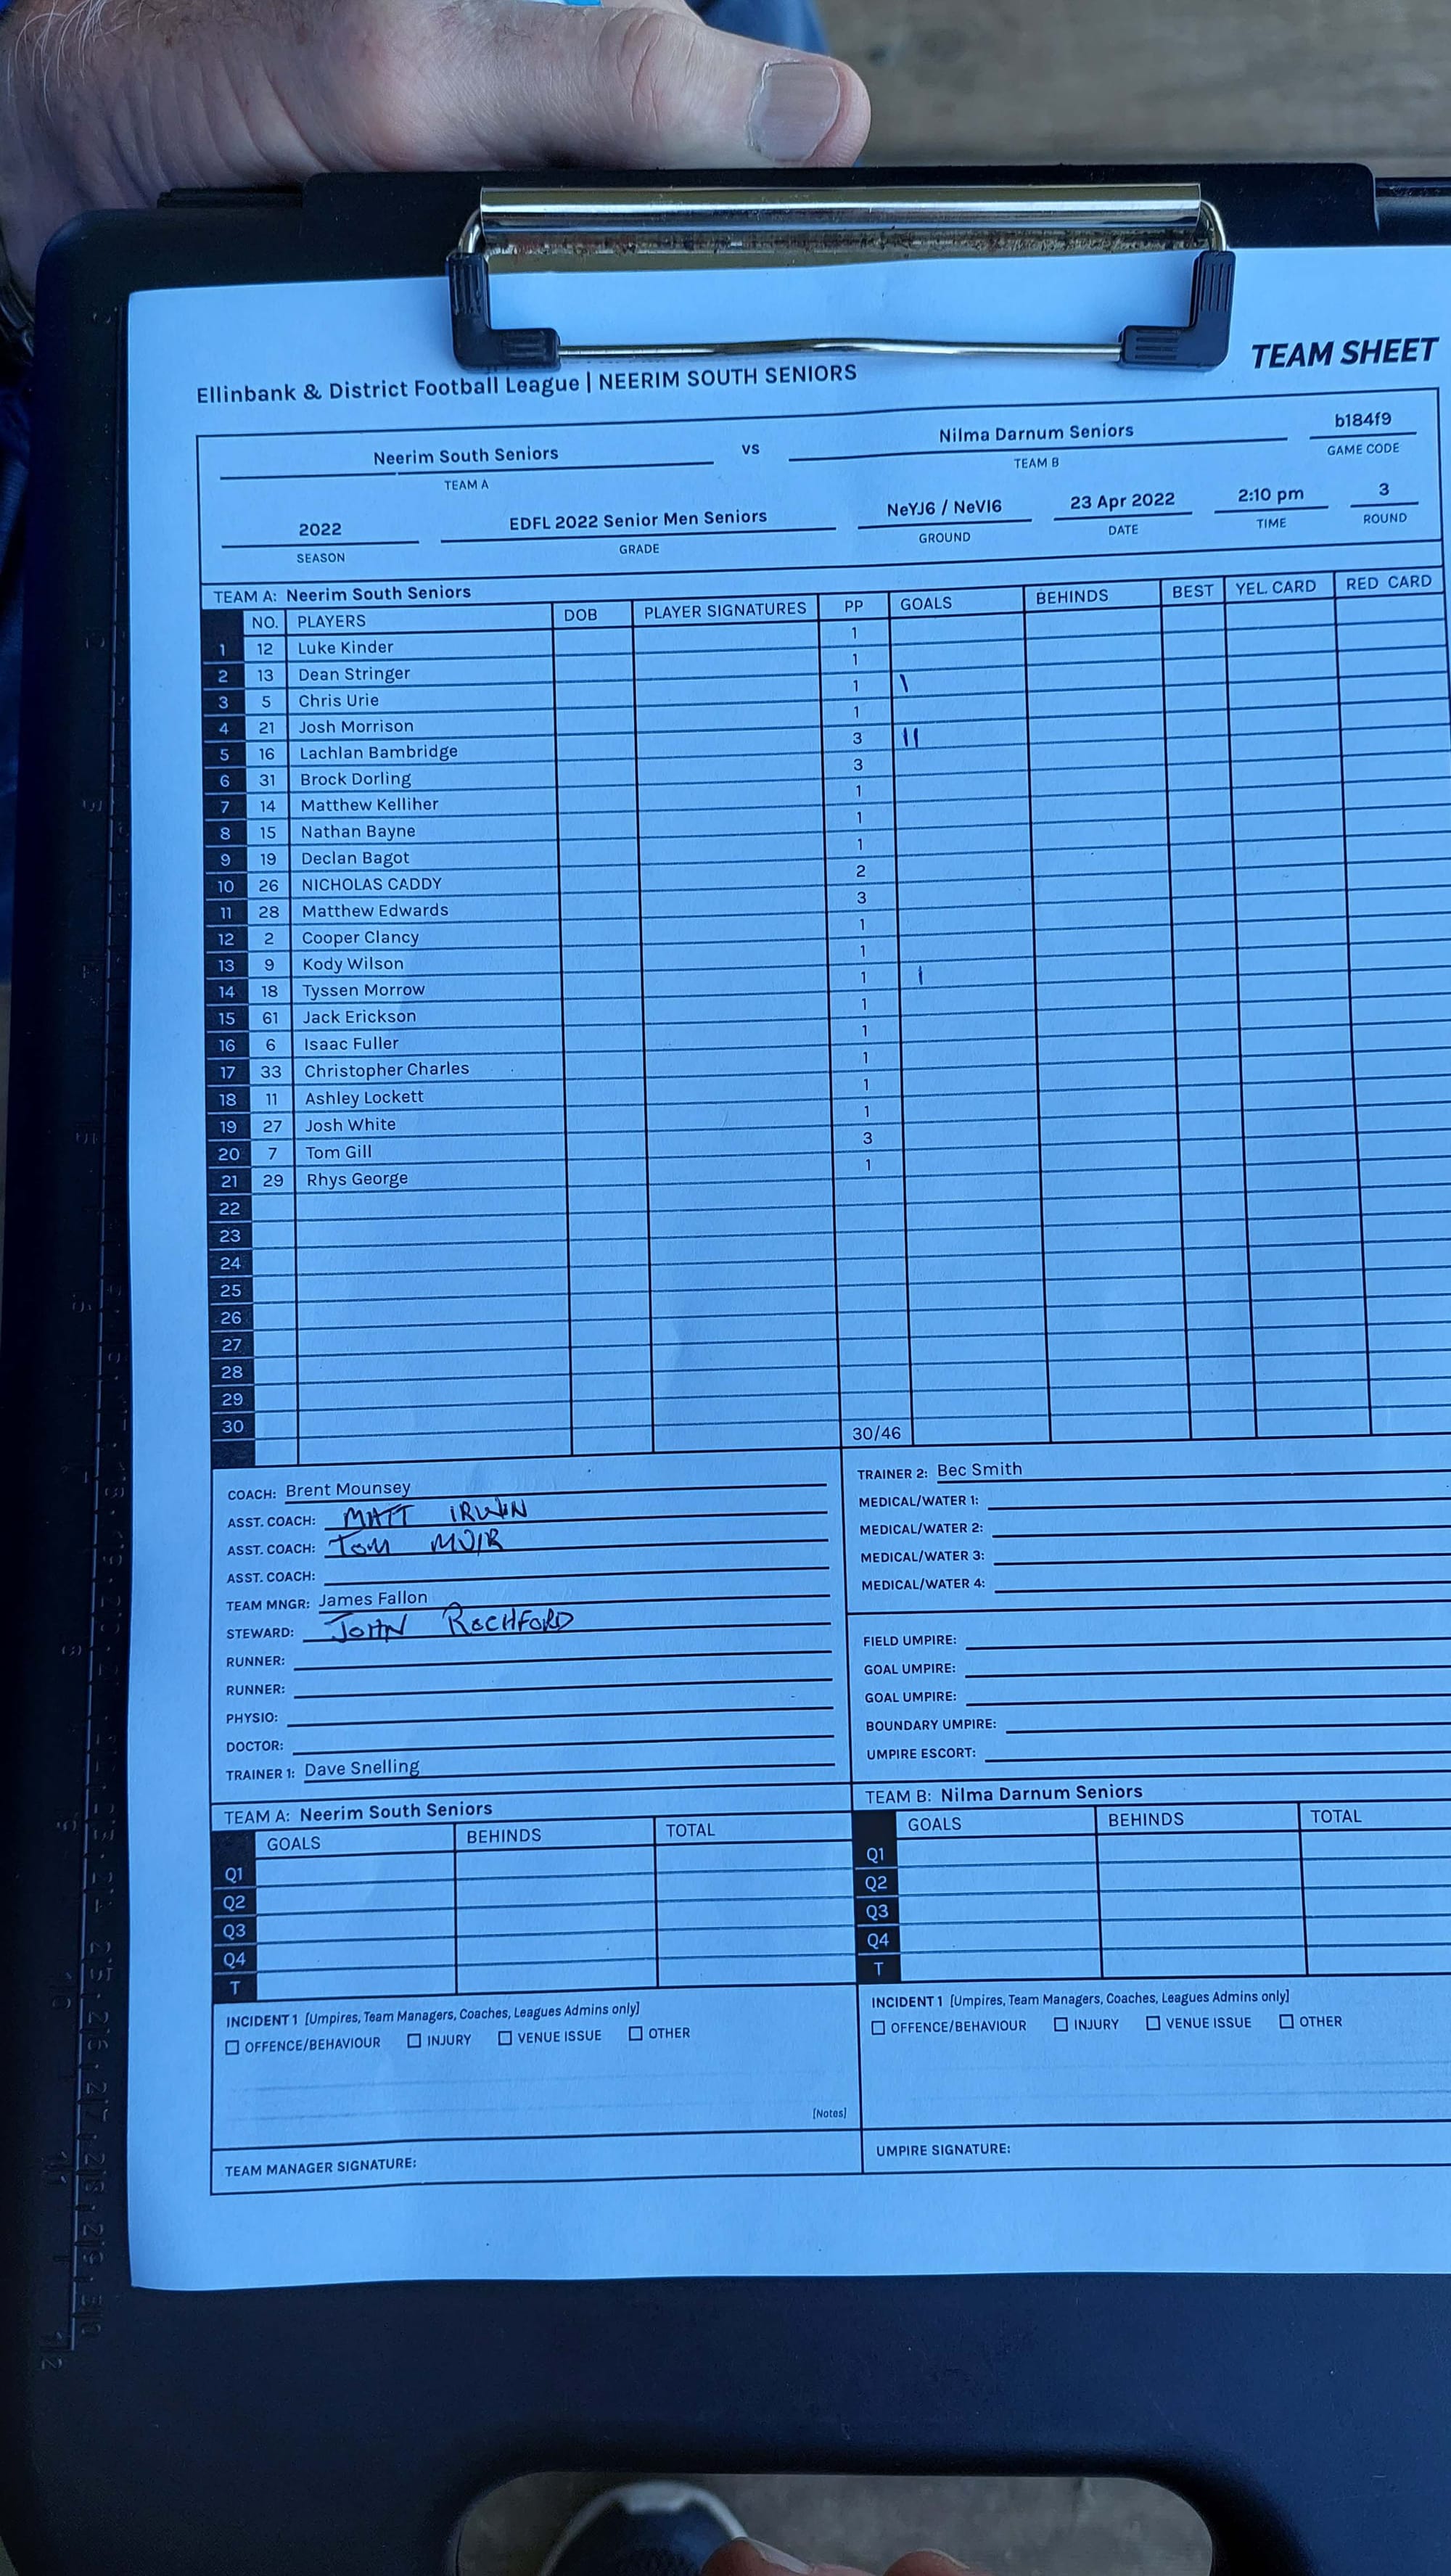 TEAM SHEET
Ellinbank & District Football League | NEERIM SOUTH SENIORS
Neerim South Seniors vs Nilma Darnum Seniors b184f9
TEAM A TEAM B GAME CODE
2022 EDFL 2022 Senior Men Seniors NeYJ6 / NeVI6 23 Apr 2022 2:10 pm 3
SEASON GRADE GROUND DATE TIME ROUND
TEAM A: Neerim South Seniors
NO. PLAYERS DOB PLAYER SIGNATURES PP GOALS BEHINDS BEST YEL. CARD RED CARD
1 12 Luke Kinder 1
2 13 Dean Stringer 1
3 5 Chris Urie 1 \
4 21 Josh Morrison 1
5 16 Lachlan Bambridge 3 ||
6 31 Brock Dorling 3
7 14 Matthew Kelliher 1
8 15 Nathan Bayne 1
9 19 Declan Bagot 1
10 26 NICHOLAS CADDY 2
11 28 Matthew Edwards 3
12 2 Cooper Clancy 1
13 9 Kody Wilson 1
14 18 Tyssen Morrow 1 |
15 61 Jack Erickson 1
16 6 Isaac Fuller 1
17 33 Christopher Charles 1
18 11 Ashley Lockett 1
19 27 Josh White 1
20 7 Tom Gill 3
21 29 Rhys George 1
22
23
24
25
26
27
28
29
30
30/46
COACH: Brent Mounsey
ASST. COACH: MATT IRWIN
ASST. COACH: TOM MUIR
ASST. COACH:
TEAM MNGR: James Fallon
STEWARD: JOHN ROCHFORD
RUNNER:
RUNNER:
PHYSIO:
DOCTOR:
TRAINER 1: Dave Snelling
TRAINER 2: Bec Smith
MEDICAL/WATER 1:
MEDICAL/WATER 2:
MEDICAL/WATER 3:
MEDICAL/WATER 4:
FIELD UMPIRE:
GOAL UMPIRE:
GOAL UMPIRE:
BOUNDARY UMPIRE:
UMPIRE ESCORT:
TEAM A: Neerim South Seniors
GOALS BEHINDS TOTAL
Q1
Q2
Q3
Q4
T
TEAM B: Nilma Darnum Seniors
GOALS BEHINDS TOTAL
Q1
Q2
Q3
Q4
T
INCIDENT 1 [Umpires, Team Managers, Coaches, Leagues Admins only]
OFFENCE/BEHAVIOUR INJURY VENUE ISSUE OTHER
[Notes]
TEAM MANAGER SIGNATURE:
INCIDENT 1 [Umpires, Team Managers, Coaches, Leagues Admins only]
OFFENCE/BEHAVIOUR INJURY VENUE ISSUE OTHER
UMPIRE SIGNATURE: